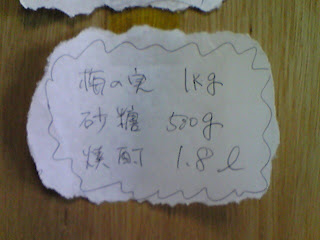 梅の実 1Kg
砂糖 500g
焼酎 1.8l